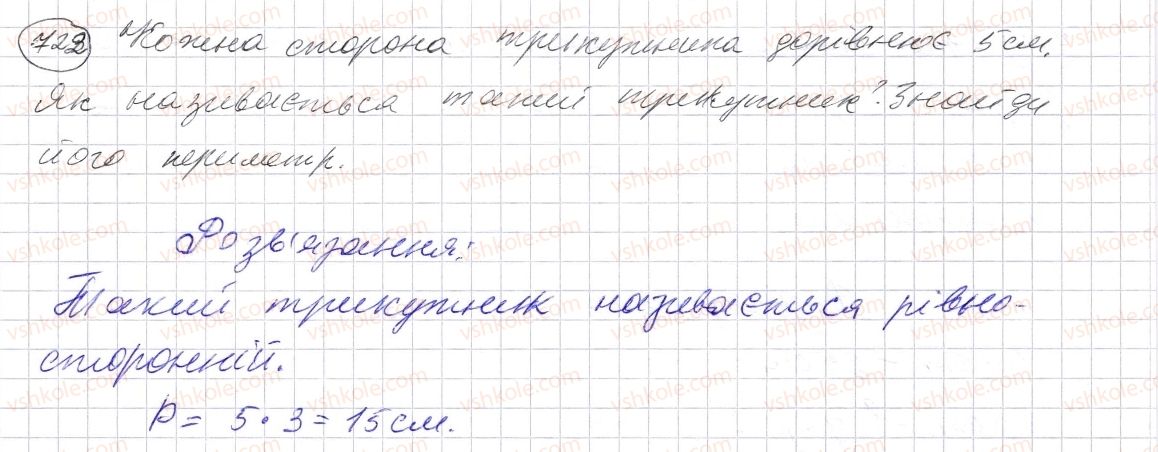 722 Кожна сторона трикутника дорівнює 5 см.
Як називається такий трикутник? Знайди
його периметр.
Розв'язання:
Такий трикутник називається рівно-
сторонній.
P = 5 · 3 = 15 см.